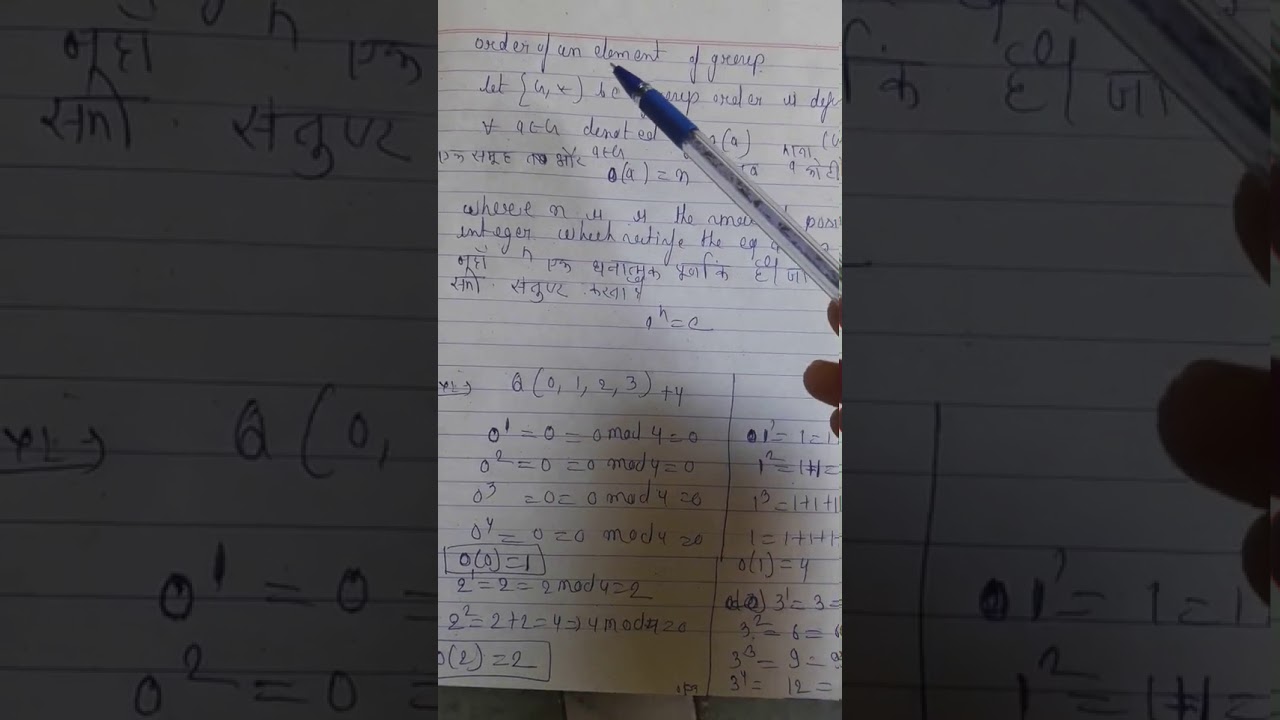 order of an element of group.
let {G, *) be group order is def
∀ a∈G denoted (a) माना (G
एक समूह और a∈G a कोटी
O(a) = n
where n is is the small posi
integer. which satisfe the eq
जहाँ n एक धनात्मक पूर्णांक है। जो
समी सतुष्ट करता है
a^n = e
Q (0, 1, 2, 3) +4
0^1 = 0 = 0 mod 4 = 0
0^2 = 0 = 0 mod 4 = 0
0^3 = 0 = 0 mod 4 = 0
0^4 = 0 = 0 mod 4 = 0
O(0) = 1
2^1 = 2 = 2 mod 4 = 2
2^2 = 2+2 = 4 ⇒ 4 mod 4 = 0
O(2) = 2
1^1 = 1 = 1
1^2 = 1+1 =
1^3 = 1+1+1
1 = 1+1+1+
O(1) = 4
3^1 = 3 =
3^2 = 6 = 6
3^3 = 9 =
3^4 = 12 =